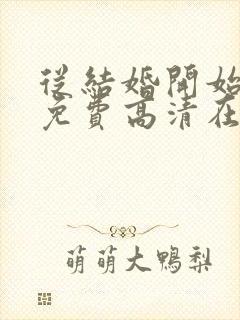 從結婚開始
免費高清在
萌萌大鴨梨